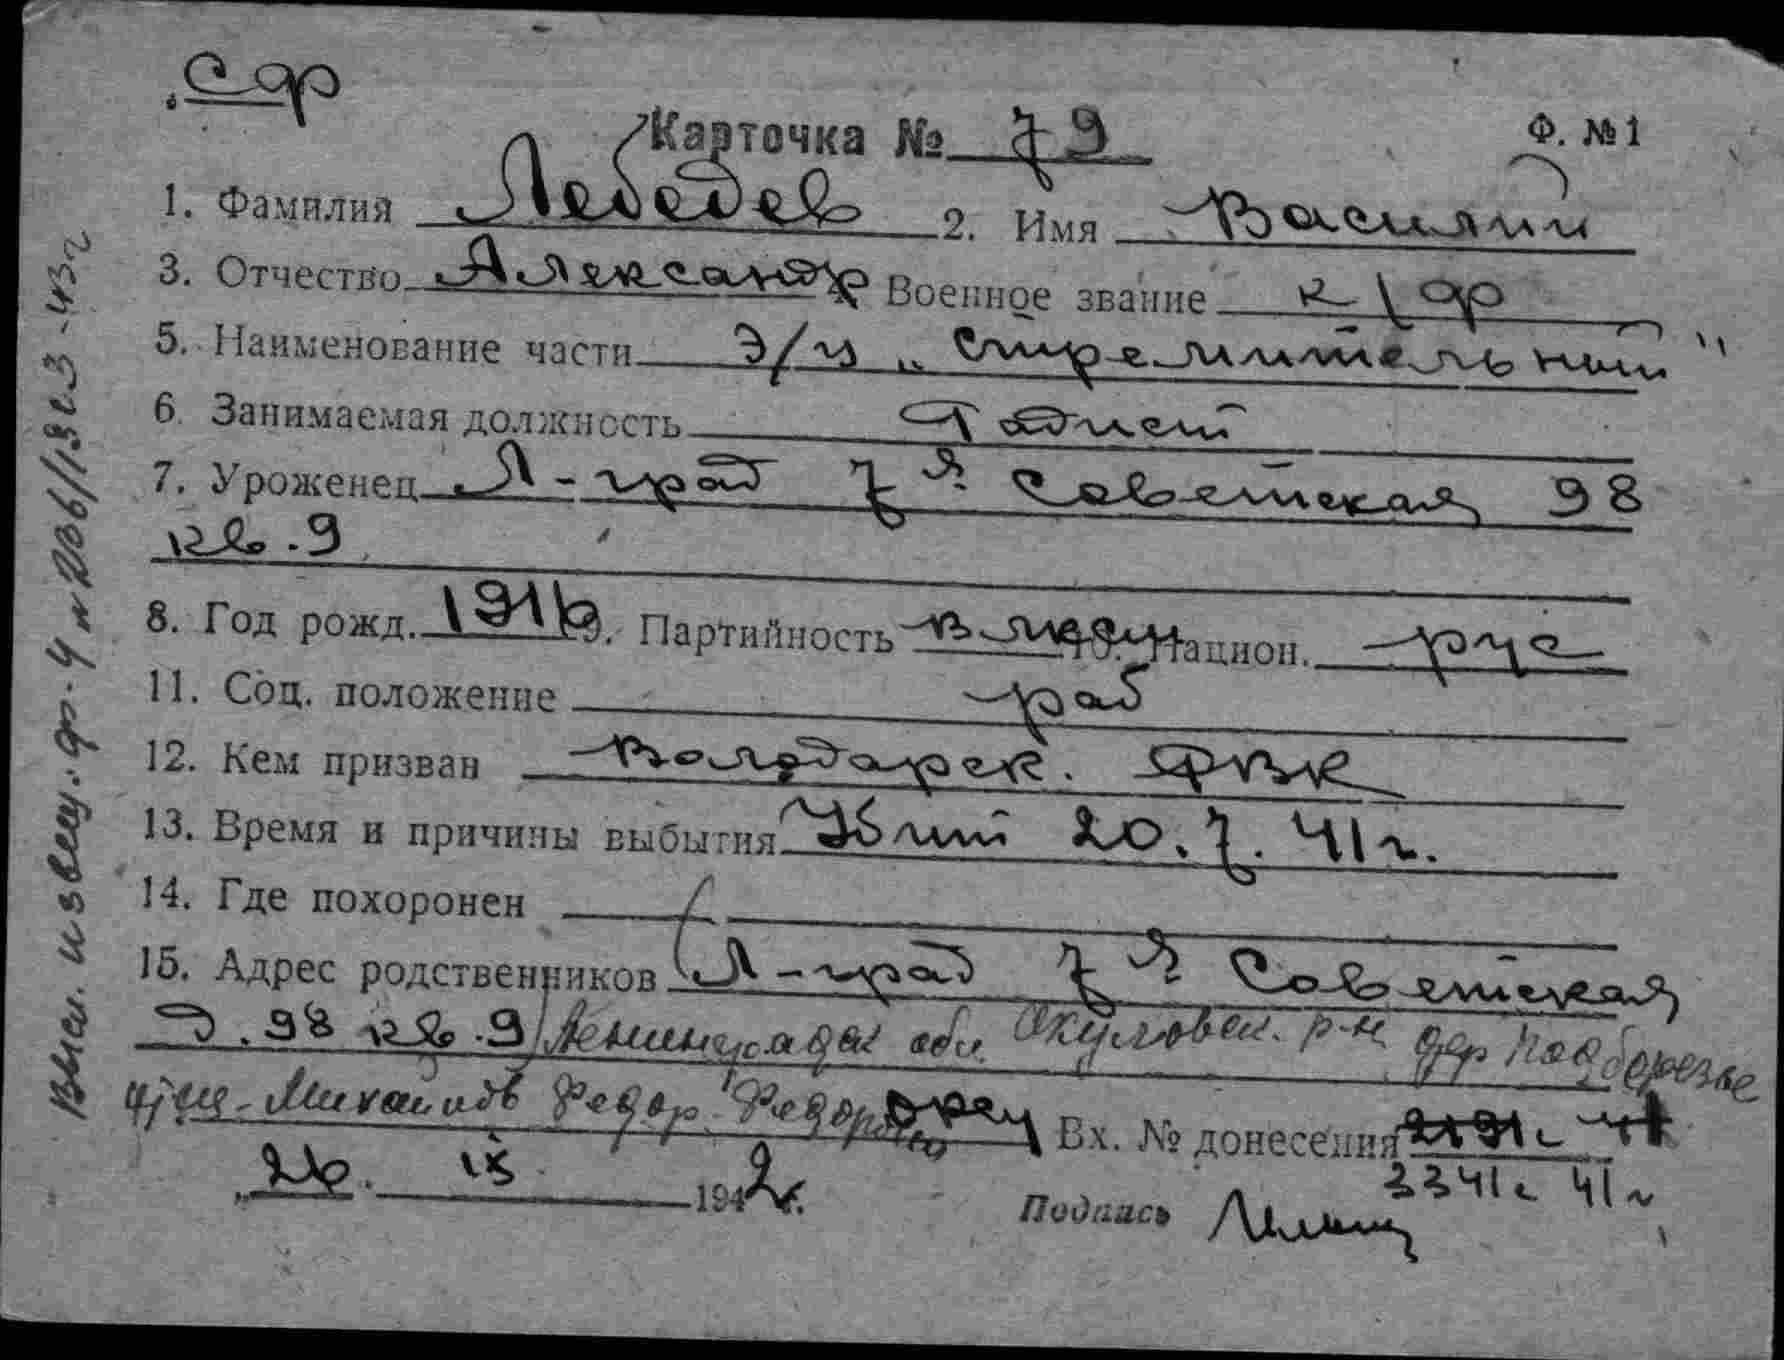 СФ
Карточка № 79 Ф. №1
1. Фамилия Лебедев 2. Имя Василий
3. Отчество Александр Военное звание к/ф
5. Наименование части Э/м „Стремительный"
6. Занимаемая должность Радист
7. Уроженец Л-град 7я Советская 98
кв. 9
8. Год рожд. 1916 9. Партийность влксм 10. Национ. рус
11. Соц. положение раб
12. Кем призван Володарск. РВК
13. Время и причины выбытия Убит 20.7.41 г.
14. Где похоронен
15. Адрес родственников Л-град 7я Советская
д. 98 кв. 9 Ленинградск обл. Окуловск. р-н дер Подберезье
Михайлов Федор Федорович Вх. № донесения 2191с 41
3341с 41 г
„26. IX 1942 г. Подпись
Выс. извещ. ф. 4 №